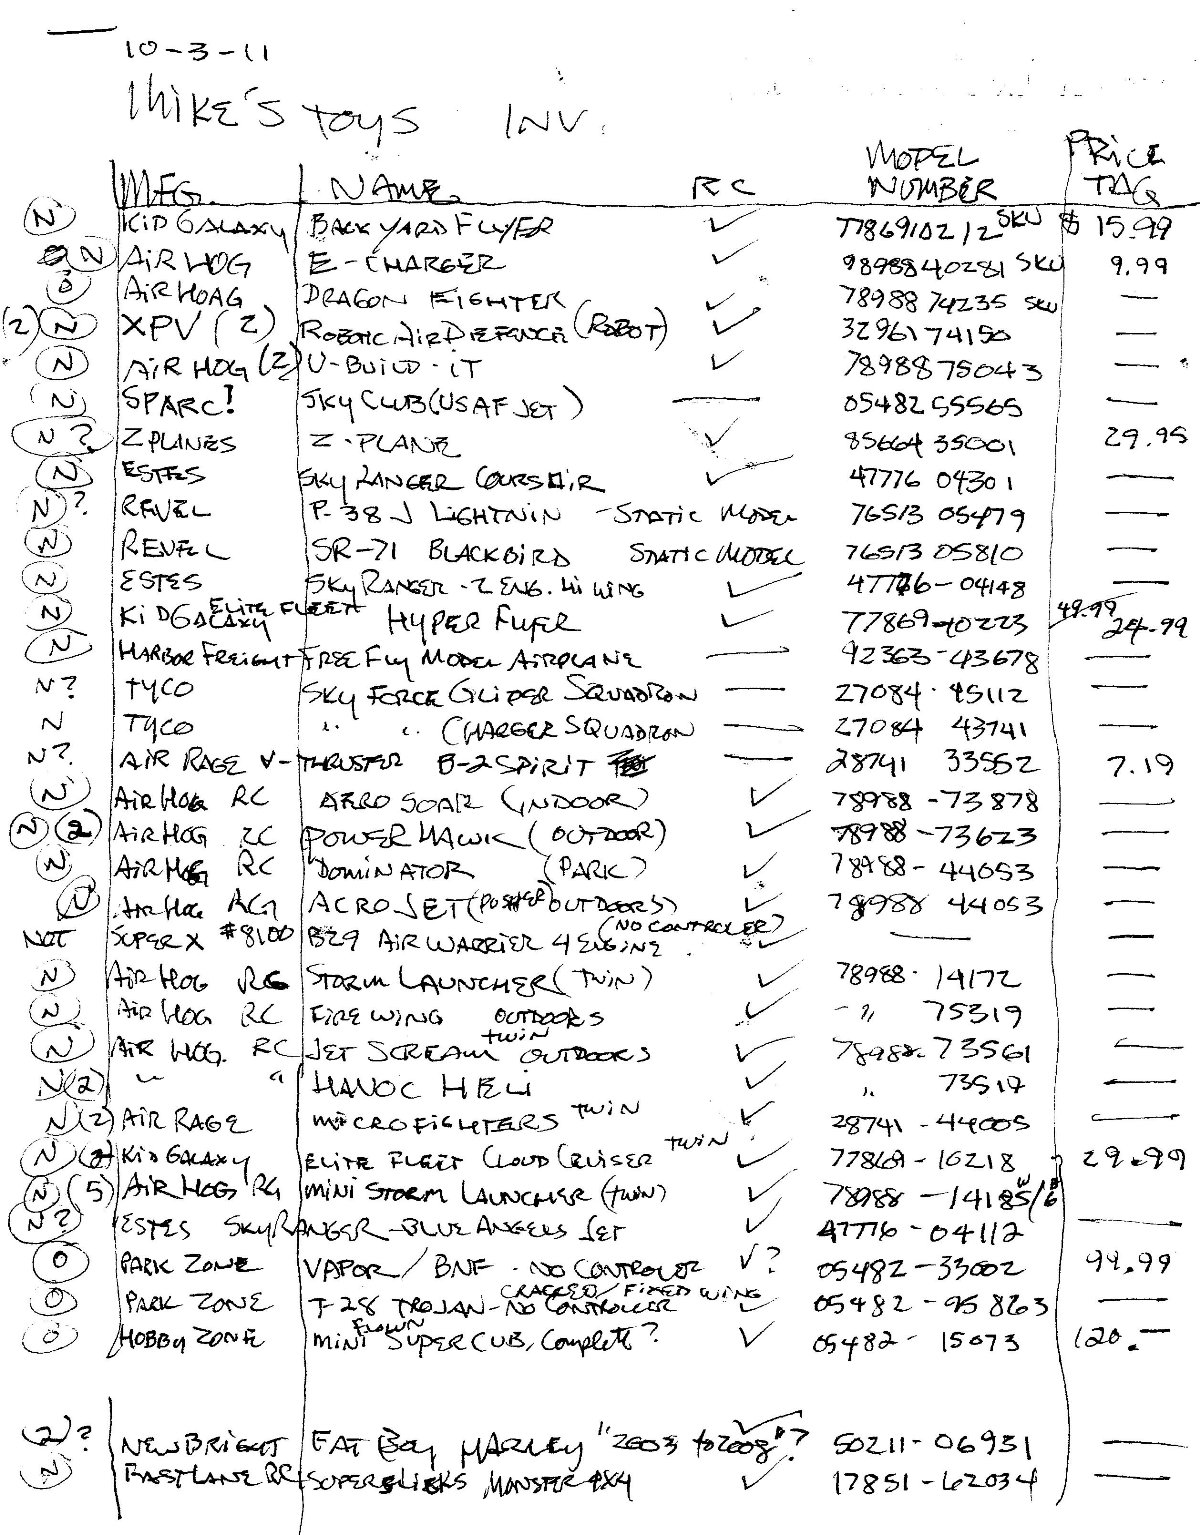 10-3-11
MIKE'S TOYS INV.
MFG. NAME RC MODEL NUMBER PRICE TAG
N KID GALAXY BACKYARD FLYER ✓ 7786910212 SKU $ 15.99
N AIR HOG E-CHARGER ✓ 9898840281 SKU 9.99
O AIR HOAG DRAGON FIGHTER ✓ 7898874235 SKU —
(2) N XPV (2) ROBOTIC AIR DEFENCE (ROBOT) ✓ 3296174150 —
N AIR HOG (2) U-BUILD-IT ✓ 7898875043 —
N SPARC! SKY CLUB (USAF JET) — 05482 55565 —
N? Z PLANES Z-PLANE ✓ 85664 35001 29.95
N ESTES SKY RANGER COURSAIR ✓ 47776 04301 —
N? REVEL P-38 J LIGHTNIN - STATIC MODEL 76513 05479 —
N REVELL SR-71 BLACKBIRD STATIC MODEL 76513 05810 —
N ESTES SKY RANGER - 2 ENG. HI WING ✓ 47776-04148 —
N KID GALAXY ELITE FLEET HYPER FLYER ✓ 77869-10223 49.99 24.99
N HARBOR FREIGHT FREE FLY MODEL AIRPLANE — 92363-43678 —
N? TYCO SKY FORCE GLIDER SQUADRON — 27084-45112 —
N TYCO " " CHARGER SQUADRON — 27084 43741 —
N? AIR RAGE V-THRUSTER B-2 SPIRIT — 28741 33552 7.19
N AIR HOG RC AERO SOAR (INDOOR) ✓ 78988-73878 —
N (2) AIR HOG RC POWER HAWK (OUTDOOR) ✓ 78988-73623 —
N AIR HOG RC DOMINATOR (PARK) ✓ 78988-44053 —
N AIR HOG ACROJET (PUSHER) OUTDOORS) ✓ 78988 44053 —
NOT SUPER X #8100 B29 AIR WARRIER 4 ENGINE (NO CONTROLER) ✓ — —
N AIR HOG RC STORM LAUNCHER (TWIN) ✓ 78988-14172 —
N AIR HOG RC FIRE WING OUTDOORS ✓ - " 75319 —
N AIR HOG. RC JET SCREAM TWIN OUTDOORS ✓ 78988-73561 —
N(2) " " HAVOC HELI ✓ " 73517 —
N(2) AIR RAGE MICROFIGHTERS TWIN ✓ 28741-44005 —
N (2) KID GALAXY ELITE FLEET CLOUD CRUISER TWIN ✓ 77869-10218 29.99
N (5) AIR HOG RC MINI STORM LAUNCHER (TWIN) ✓ 78988-14185/6
N? ESTES SKYRANGER - BLUE ANGELS JET ✓ 47776-04112 —
O PARK ZONE VAPOR / BNF - NO CONTROLER ✓? 05482-33002 99.99
O PARK ZONE T-28 TROJAN - NO CONTROLLER CRACKED/FIXED WING ✓ 05482-95863 —
O HOBBY ZONE MINI FLOWN SUPER CUB, Complete? ✓ 05482-15073 120.—
(2)? NEW BRIGHT FAT BOY HARLEY "2003 to 2008"? ✓ 50211-06931 —
N FASTLANE RC SUPERSLICKS MONSTER 4X4 ✓ 17851-62034 —